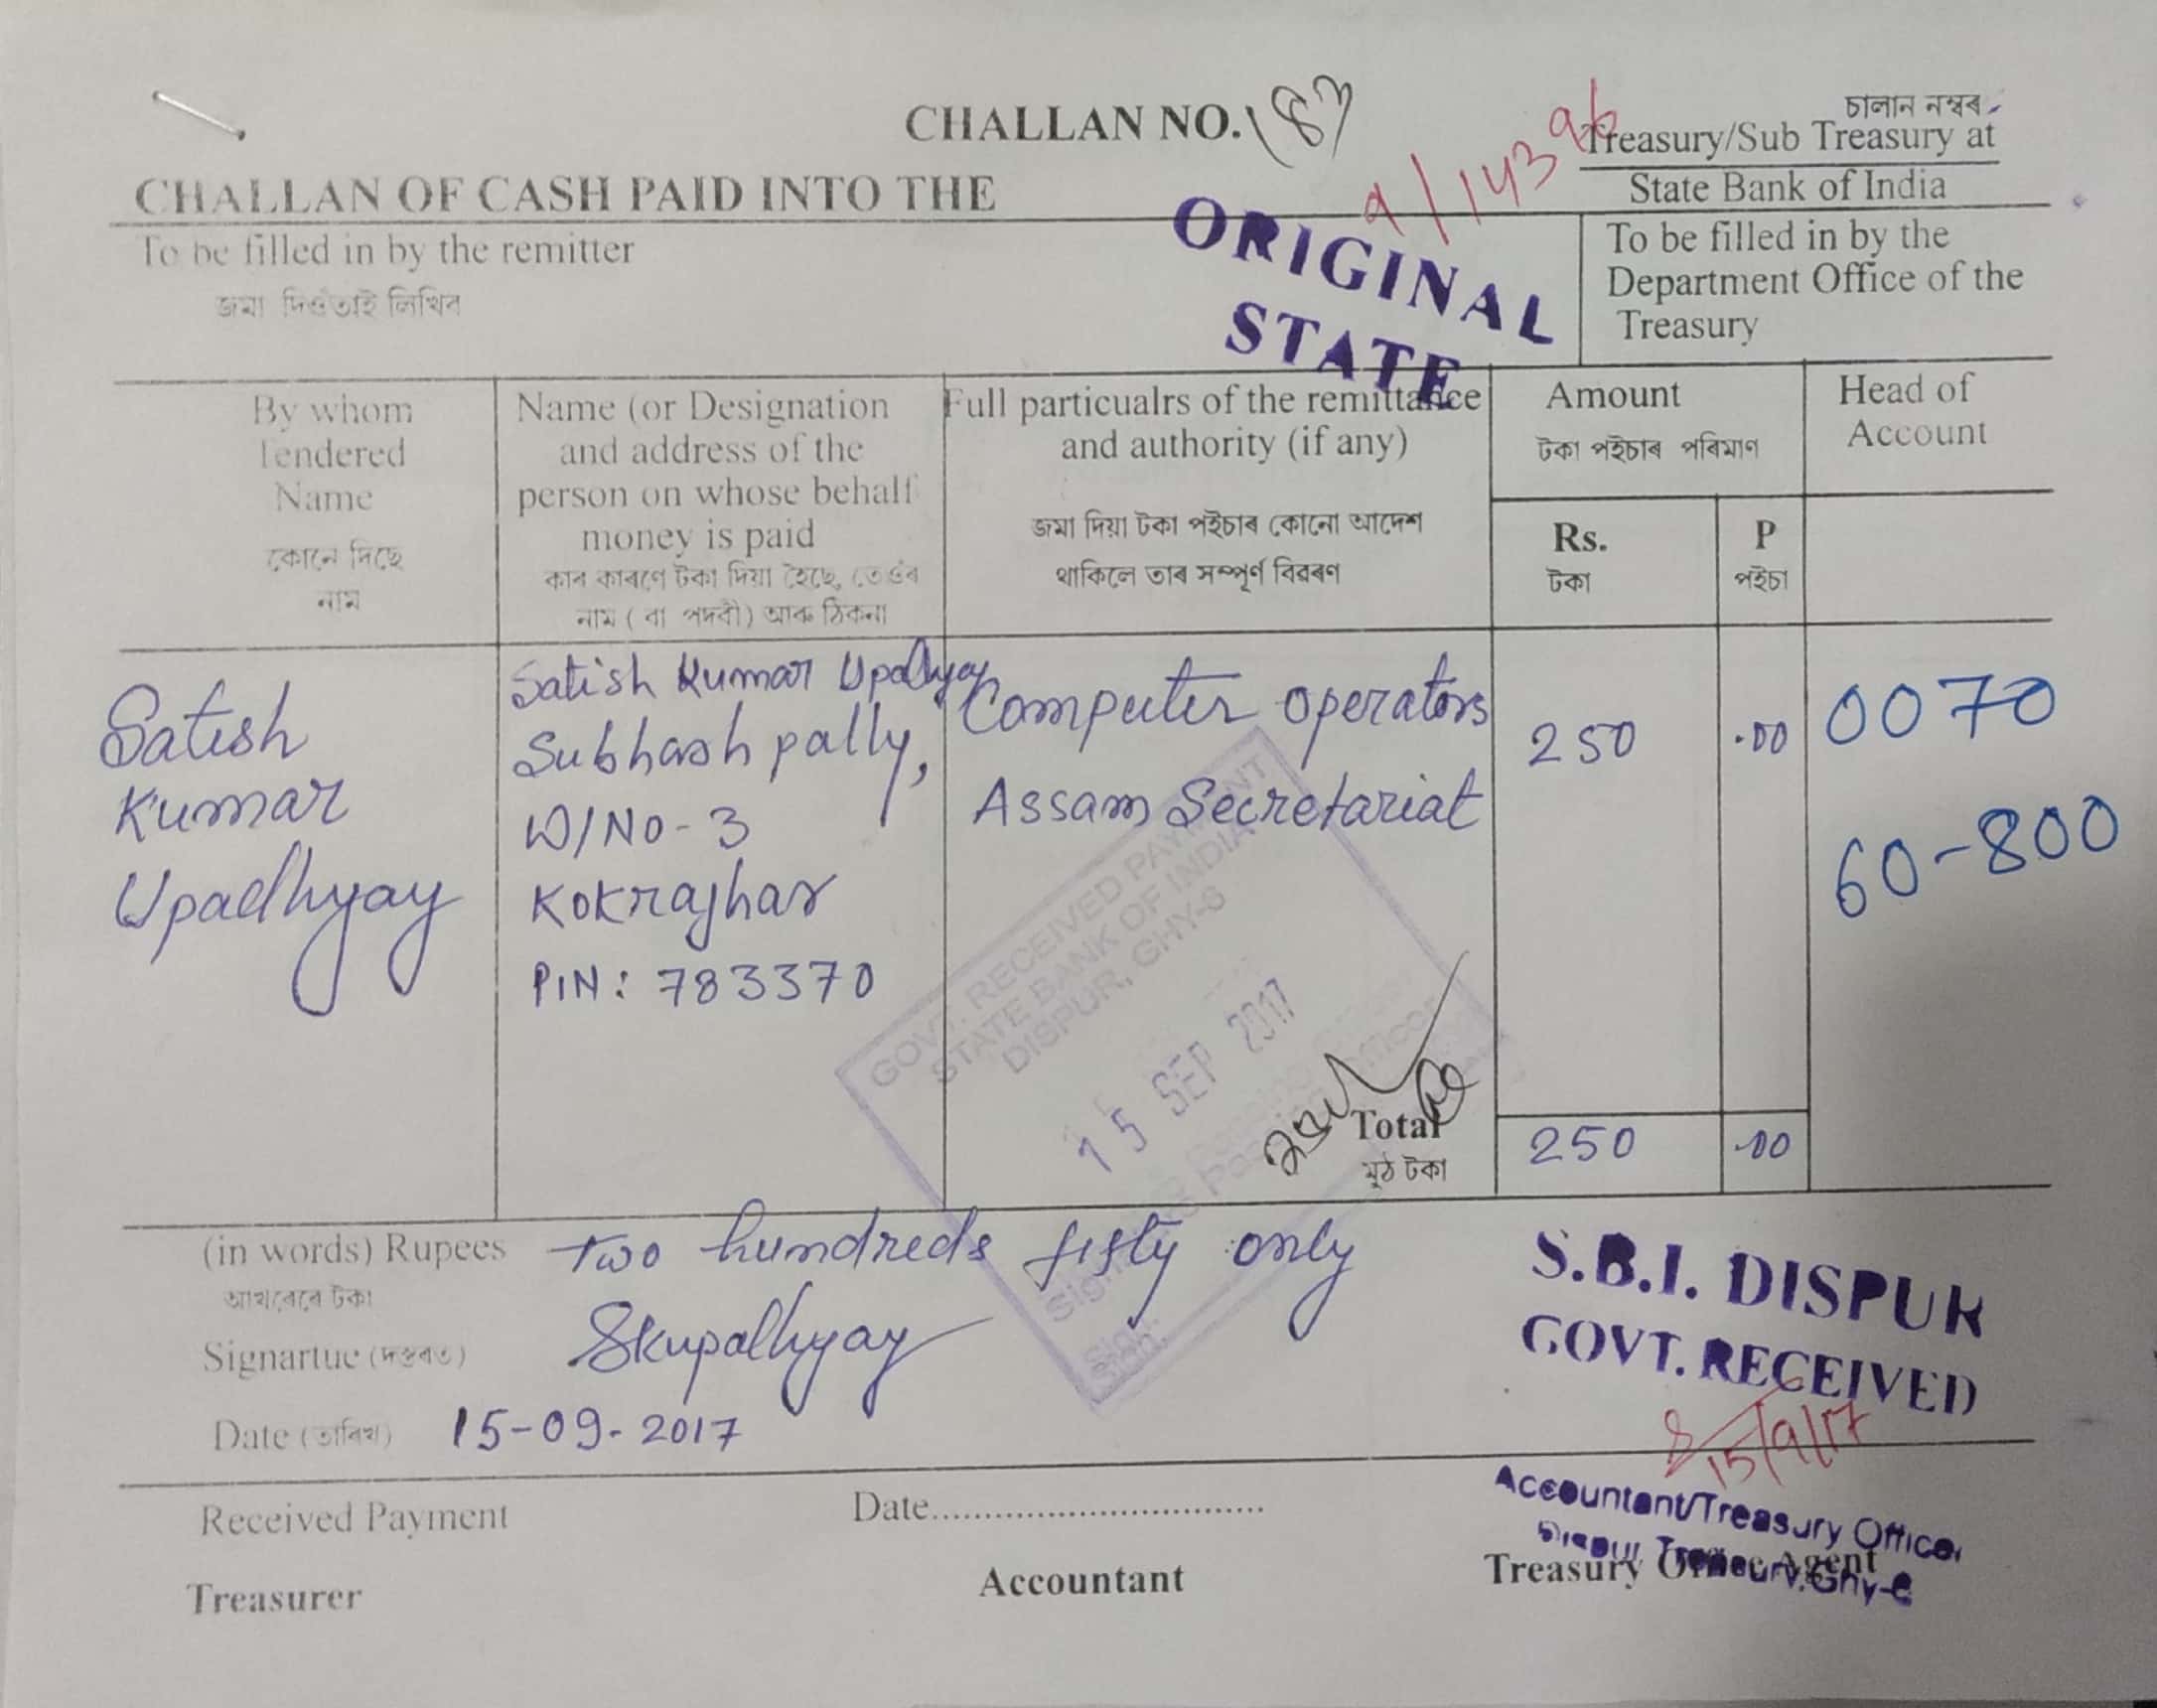 চালান নম্বৰ
CHALLAN NO. 183
Treasury/Sub Treasury at
CHALLAN OF CASH PAID INTO THE
State Bank of India
ORIGINAL
STATE
To be filled in by the remitter
জমা দিওঁতাই লিখিব
To be filled in by the
Department Office of the
Treasury
By whom
Tendered
Name
কোনে দিছে
নাম
Name (or Designation
and address of the
person on whose behalf
money is paid
কাৰ কাৰণে টকা দিয়া হৈছে, তেওঁৰ
নাম ( বা পদবী) আৰু ঠিকনা
Full particualrs of the remittance
and authority (if any)
জমা দিয়া টকা পইচাৰ কোনো আদেশ
থাকিলে তাৰ সম্পূৰ্ণ বিৱৰণ
Amount
টকা পইচাৰ পৰিমাণ
Rs.
টকা
P
পইচা
Head of
Account
Satish
Kumar
Upadhyay
Satish Kumar Upadhyay
Subhash pally,
W/No-3
Kokrajhar
PIN: 783370
Computer operators
Assam Secretariat
250 .00
0070
60-800
GOVT. RECEIVED PAYMENT
STATE BANK OF INDIA
DISPUR, GHY-6
15 SEP 2017
Total
মুঠ টকা
250 .00
(in words) Rupees two hundreds fifty only
আখৰেৰে টকা
Signartue (দস্তখত) Skupadhyay
Date (তাৰিখ) 15-09-2017
S.B.I. DISPUR
GOVT. RECEIVED
15/9/17
Received Payment
Date..............................
Accountant/Treasury Officer
Dispur Treasury, Ghy-6
Treasurer
Accountant
Treasury Agent